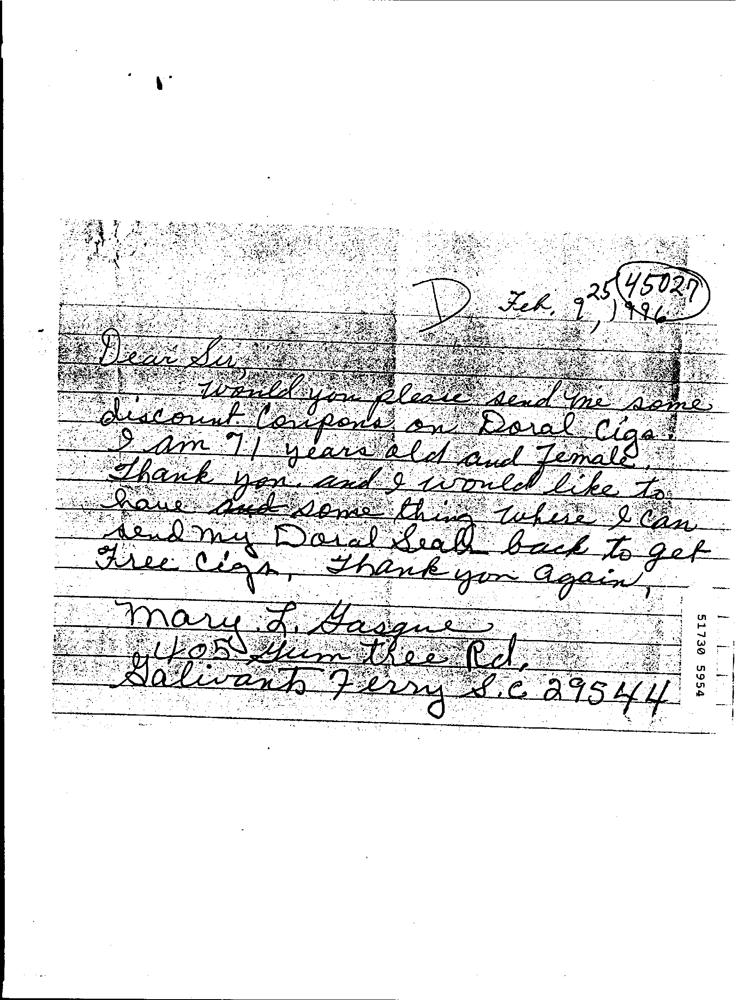 D Feb. 9, 25, 1996 45027
Dear Sir,
Would you please send me some
discount Coupons on Doral Cigs.
I am 71 years old and Female.
Thank you. and I would like to
have and some thing where I can
send my Doral Seals back to get
Free Cigs, Thank you again,
Mary L. Gasque
Gum thee Rd,
Galivants Ferry S.C. 29544
51730 5954